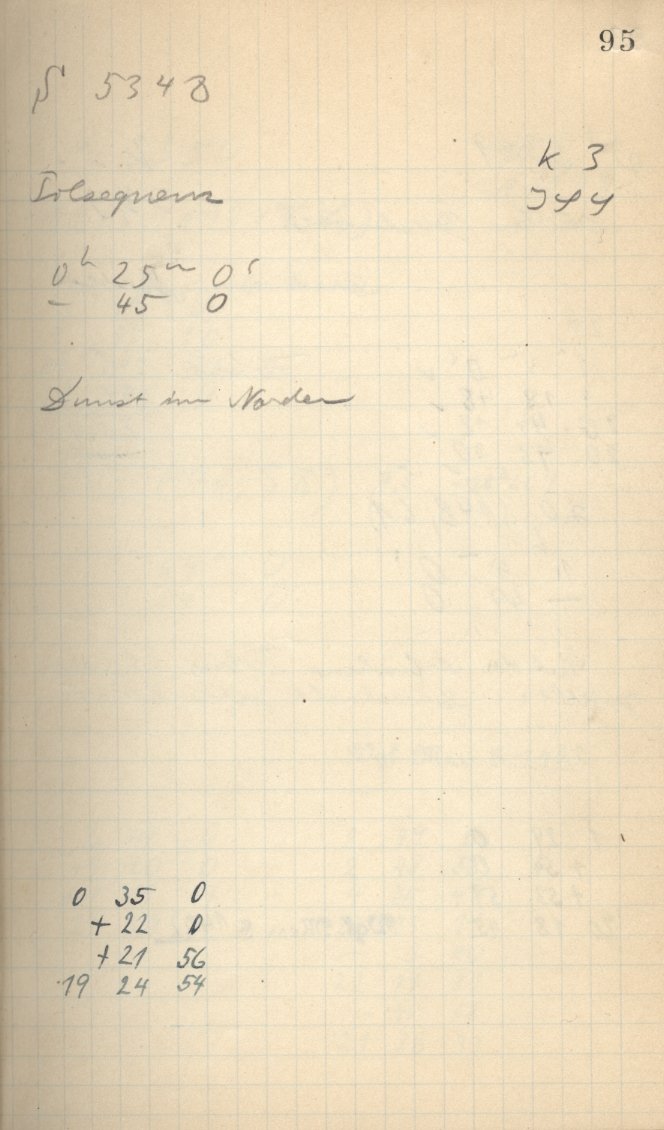 95
S 5348
K 3
Polsequenz
0h 25m 0s
- 45 0
Dunst im Norden
0 35 0
+ 22 0
+ 21 56
19 24 54